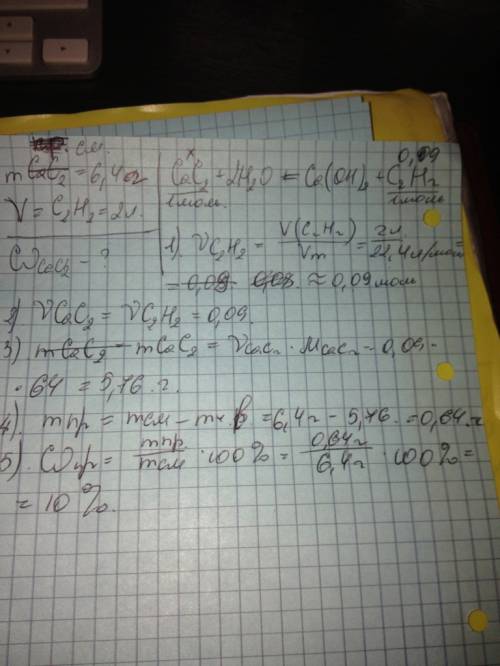 см.
m CaC₂ = 6,4 г
V = C₂H₂ = 2л.
ω CaC₂ - ?
x 0,09
CaC₂ + 2H₂O = Ca(OH)₂ + C₂H₂
1моль. 1моль
1) νC₂H₂ = V(C₂H₂)/Vm = 2л./22,4л/моль =
= 0,09 0,08. ≈ 0,09 моль
2) νCaC₂ = νC₂H₂ = 0,09.
3) mCaC₂ - mCaC₂ = νCaC₂ · MCaC₂ - 0,09 ·
· 64 = 5,76 г.
4). mпр = mсм - mч.в = 6,4г - 5,76. = 0,64.г
5). ωпр = mпр/mсм · 100% = 0,64г/6,4г · 100% =
= 10%.